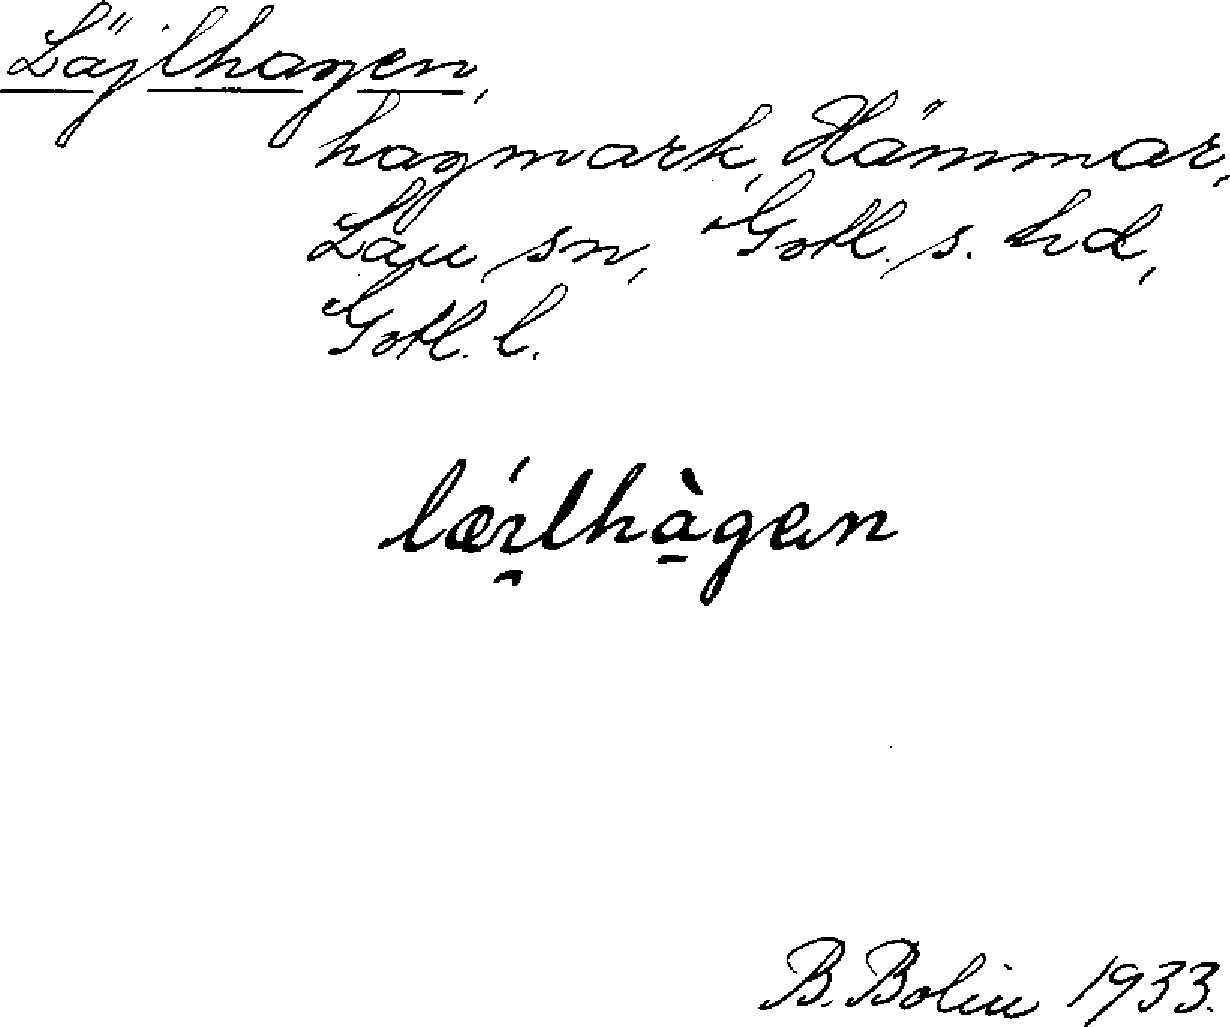 Läjlhagen,
hagmark, Hämmar,
Lau sn, Gotl. s. hd,
Gotl. l.
lǽi̯lhà̱gen
B. Bolin 1933.